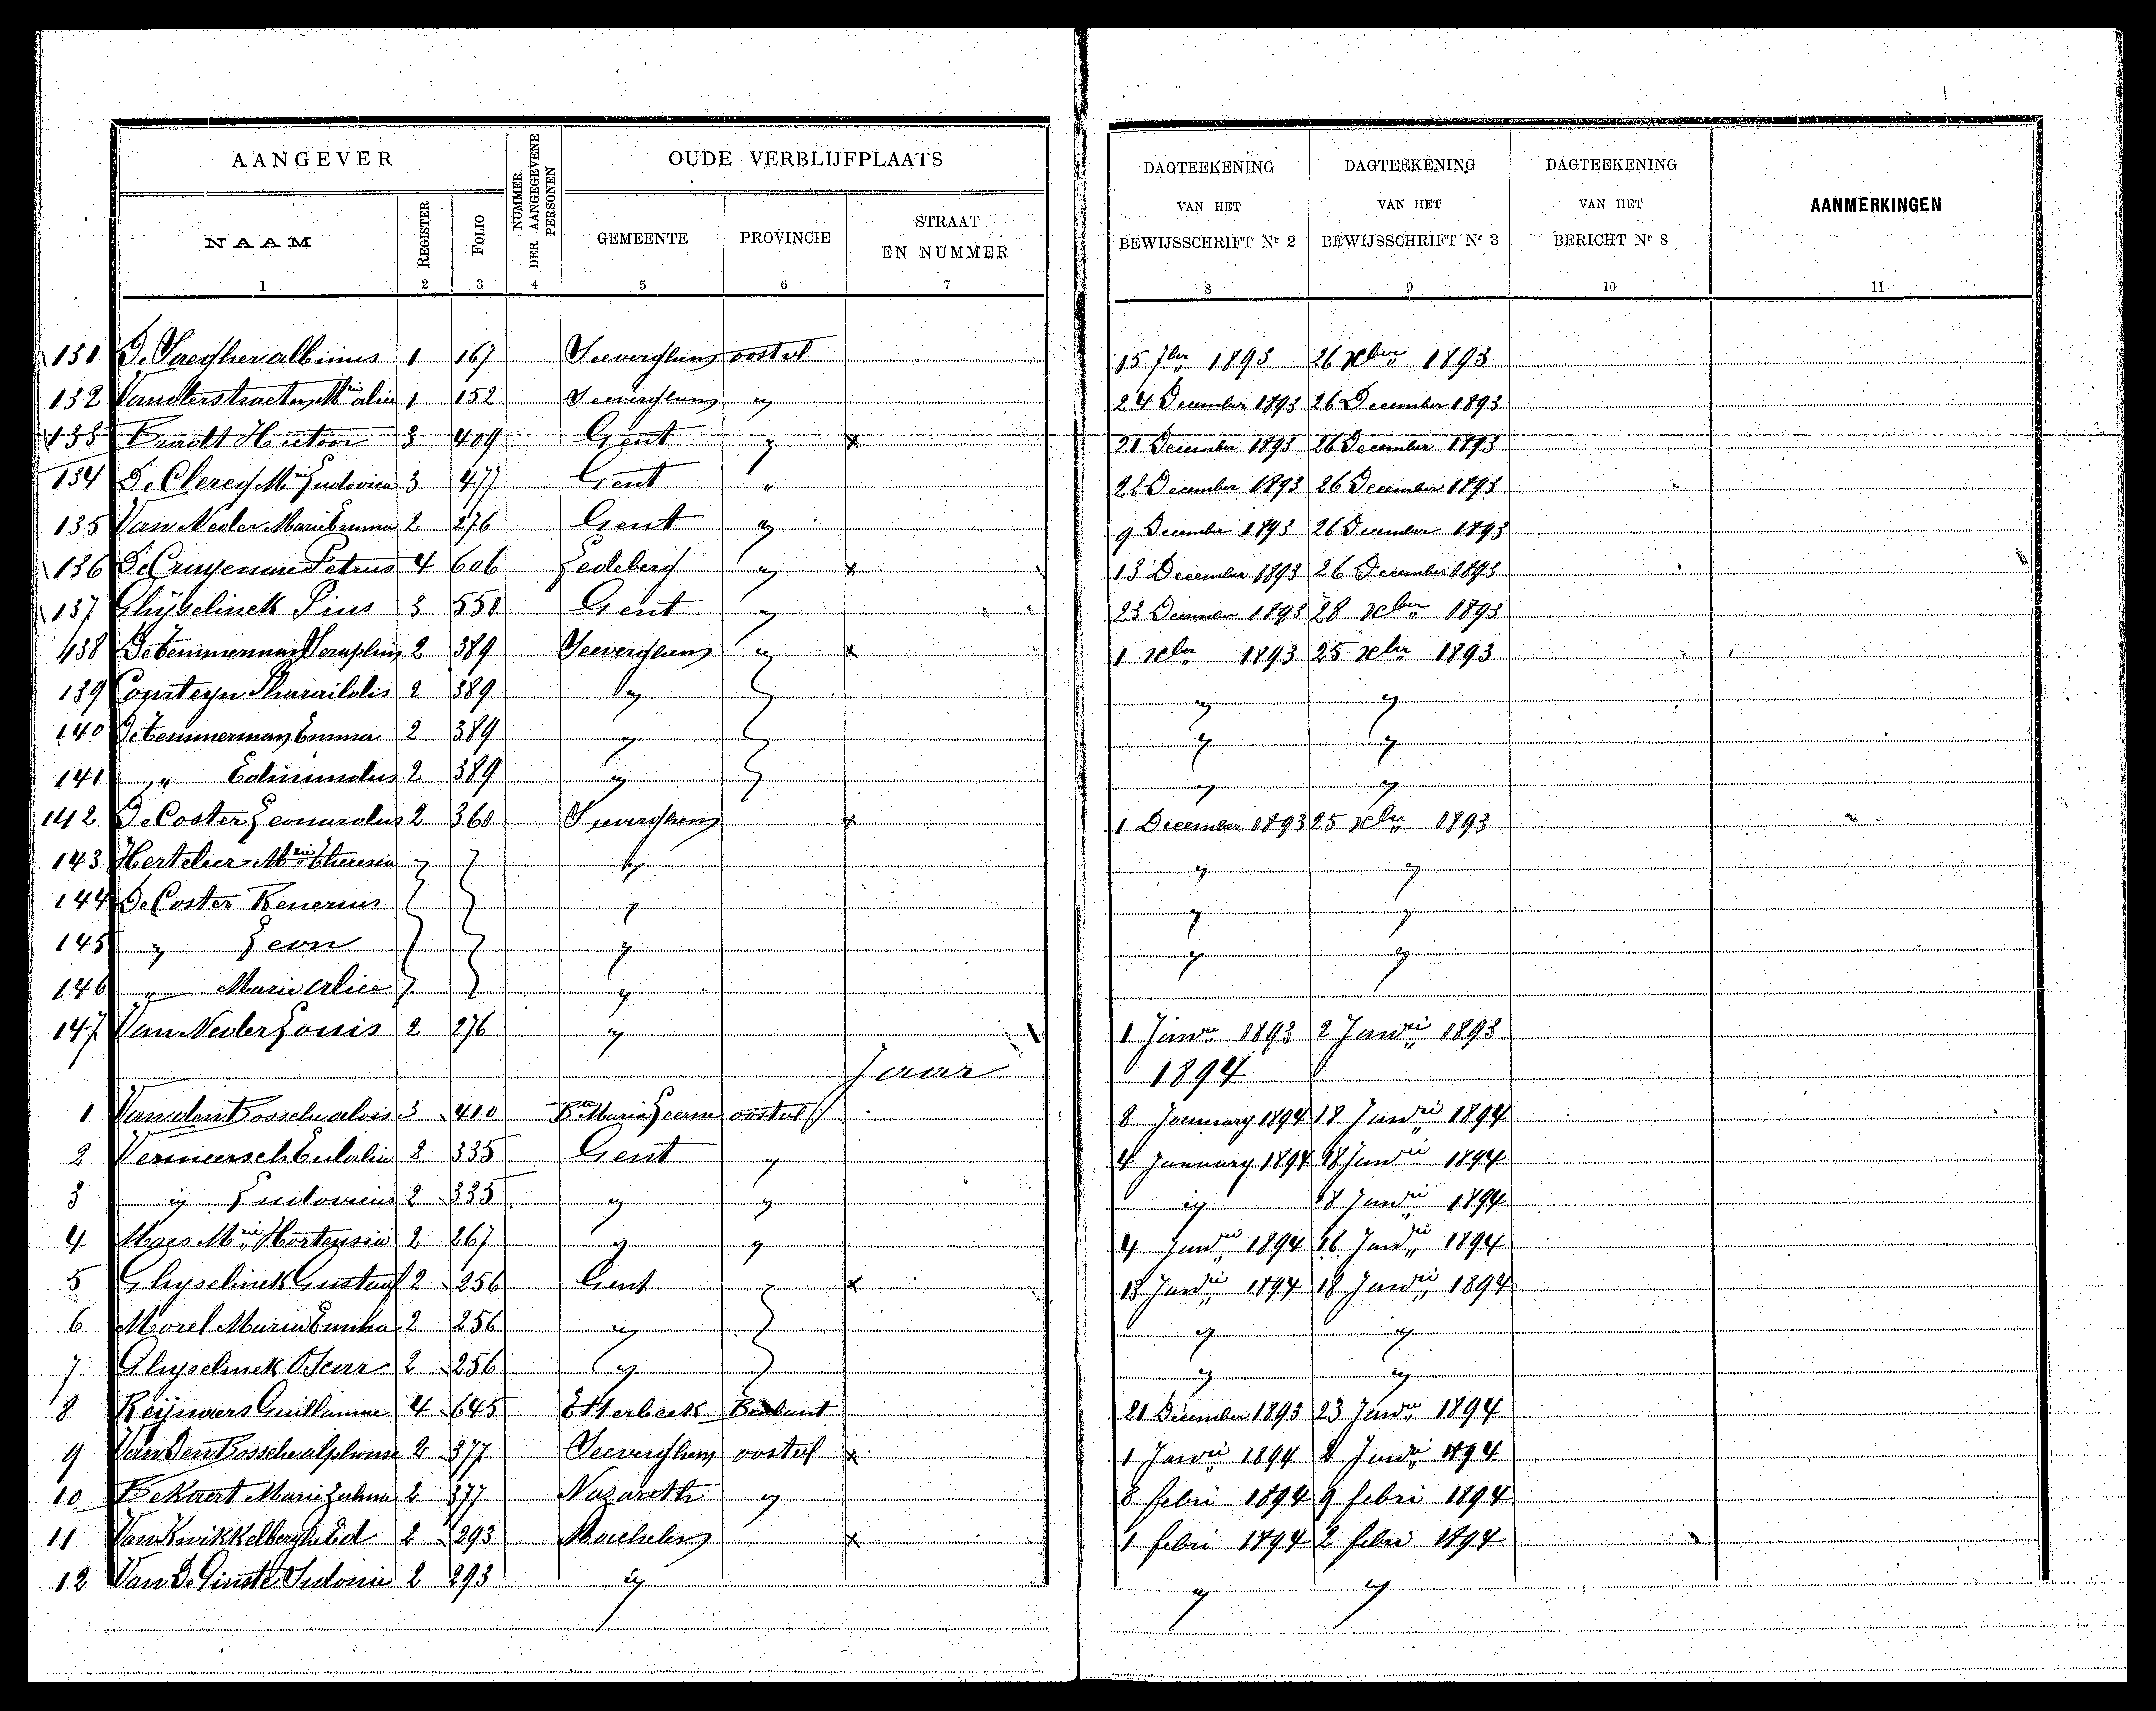 AANGEVER
NUMMER DER AANGEGEVENE PERSONEN
OUDE VERBLIJFPLAATS
DAGTEEKENING VAN HET BEWIJSSCHRIFT Nr 2
DAGTEEKENING VAN HET BEWIJSSCHRIFT Nr 3
DAGTEEKENING VAN HET BERICHT Nr 8
AANMERKINGEN
NAAM
REGISTER
FOLIO
GEMEENTE
PROVINCIE
STRAAT EN NUMMER
1 2 3 4 5 6 7 8 9 10 11
131 albinus 1 167 Seeverghem oostvl 15 1893 26 xber 1893
132 Vanderstraeten Mie alice 1 152 Seeverghem " 24 December 1893 26 December 1893
133 3 409 Gent " x 21 December 1893 26 December 1893
134 De Clercq Mie Ludovica 3 477 Gent " 22 December 1893 26 December 1893
135 Van Neder Marie Emma 2 276 Gent " 9 December 1893 26 December 1893
136 De Cruyenaere Petrus 4 606 Ledeberg " x 13 December 1893 26 December 1893
137 Ghijselinck Pius 3 550 Gent " 23 December 1893 28 xber 1893
138 De Temmerman Seraphin 2 389 Seeverghem " x 1 xber 1893 25 xber 1893
139 Courteyn Pharaildis 2 389 " " " "
140 De Temmerman Emma 2 389 " " " "
141 " Edmundus 2 389 " " " "
142 De Coster Leonardus 2 360 Seeverghem x 1 December 1893 25 xber 1893
143 Herteleer Mie Theresia " " " " "
144 De Coster Renerius " " " " "
145 " Leon " " " " "
146 " Marie Alice " " "
147 Van Neder Louis 2 276 " 1 Janri 1893 2 Janri 1893
Jaar 1894
1 Van den Bossche alois 3 410 Ste Maria Leerne oostvl 8 January 1894 18 Janri 1894
2 Vermeersch Eulalia 2 335 Gent " 4 January 1894 18 Janri 1894
3 " Ludovicus 2 335 " " " 18 Janri 1894
4 Maes Mie Hortensia 2 267 " " 4 Janri 1894 16 Janri 1894
5 Ghyselinck Gustaaf 2 256 Gent " x 13 Janri 1894 18 Janri 1894
6 Morel Maria Emma 2 256 " " " "
7 Ghyselinck Oscar 2 256 " " " "
8 Reijnaers Guillaume 4 645 Etterbeek Brabant 21 December 1893 23 Janri 1894
9 Van Den Bossche alphonse 2 377 Seeverghem oostvl x 1 Janri 1894 8 Janri 1894
10 Bekaert Marie Zulma 2 377 Nazareth " 8 febri 1894 9 febri 1894
11 Van Kwikkelberghe Ed 2 293 Machelen x 1 febri 1894 2 febri 1894
12 Van De Ginste Sidonie 2 293 " " "